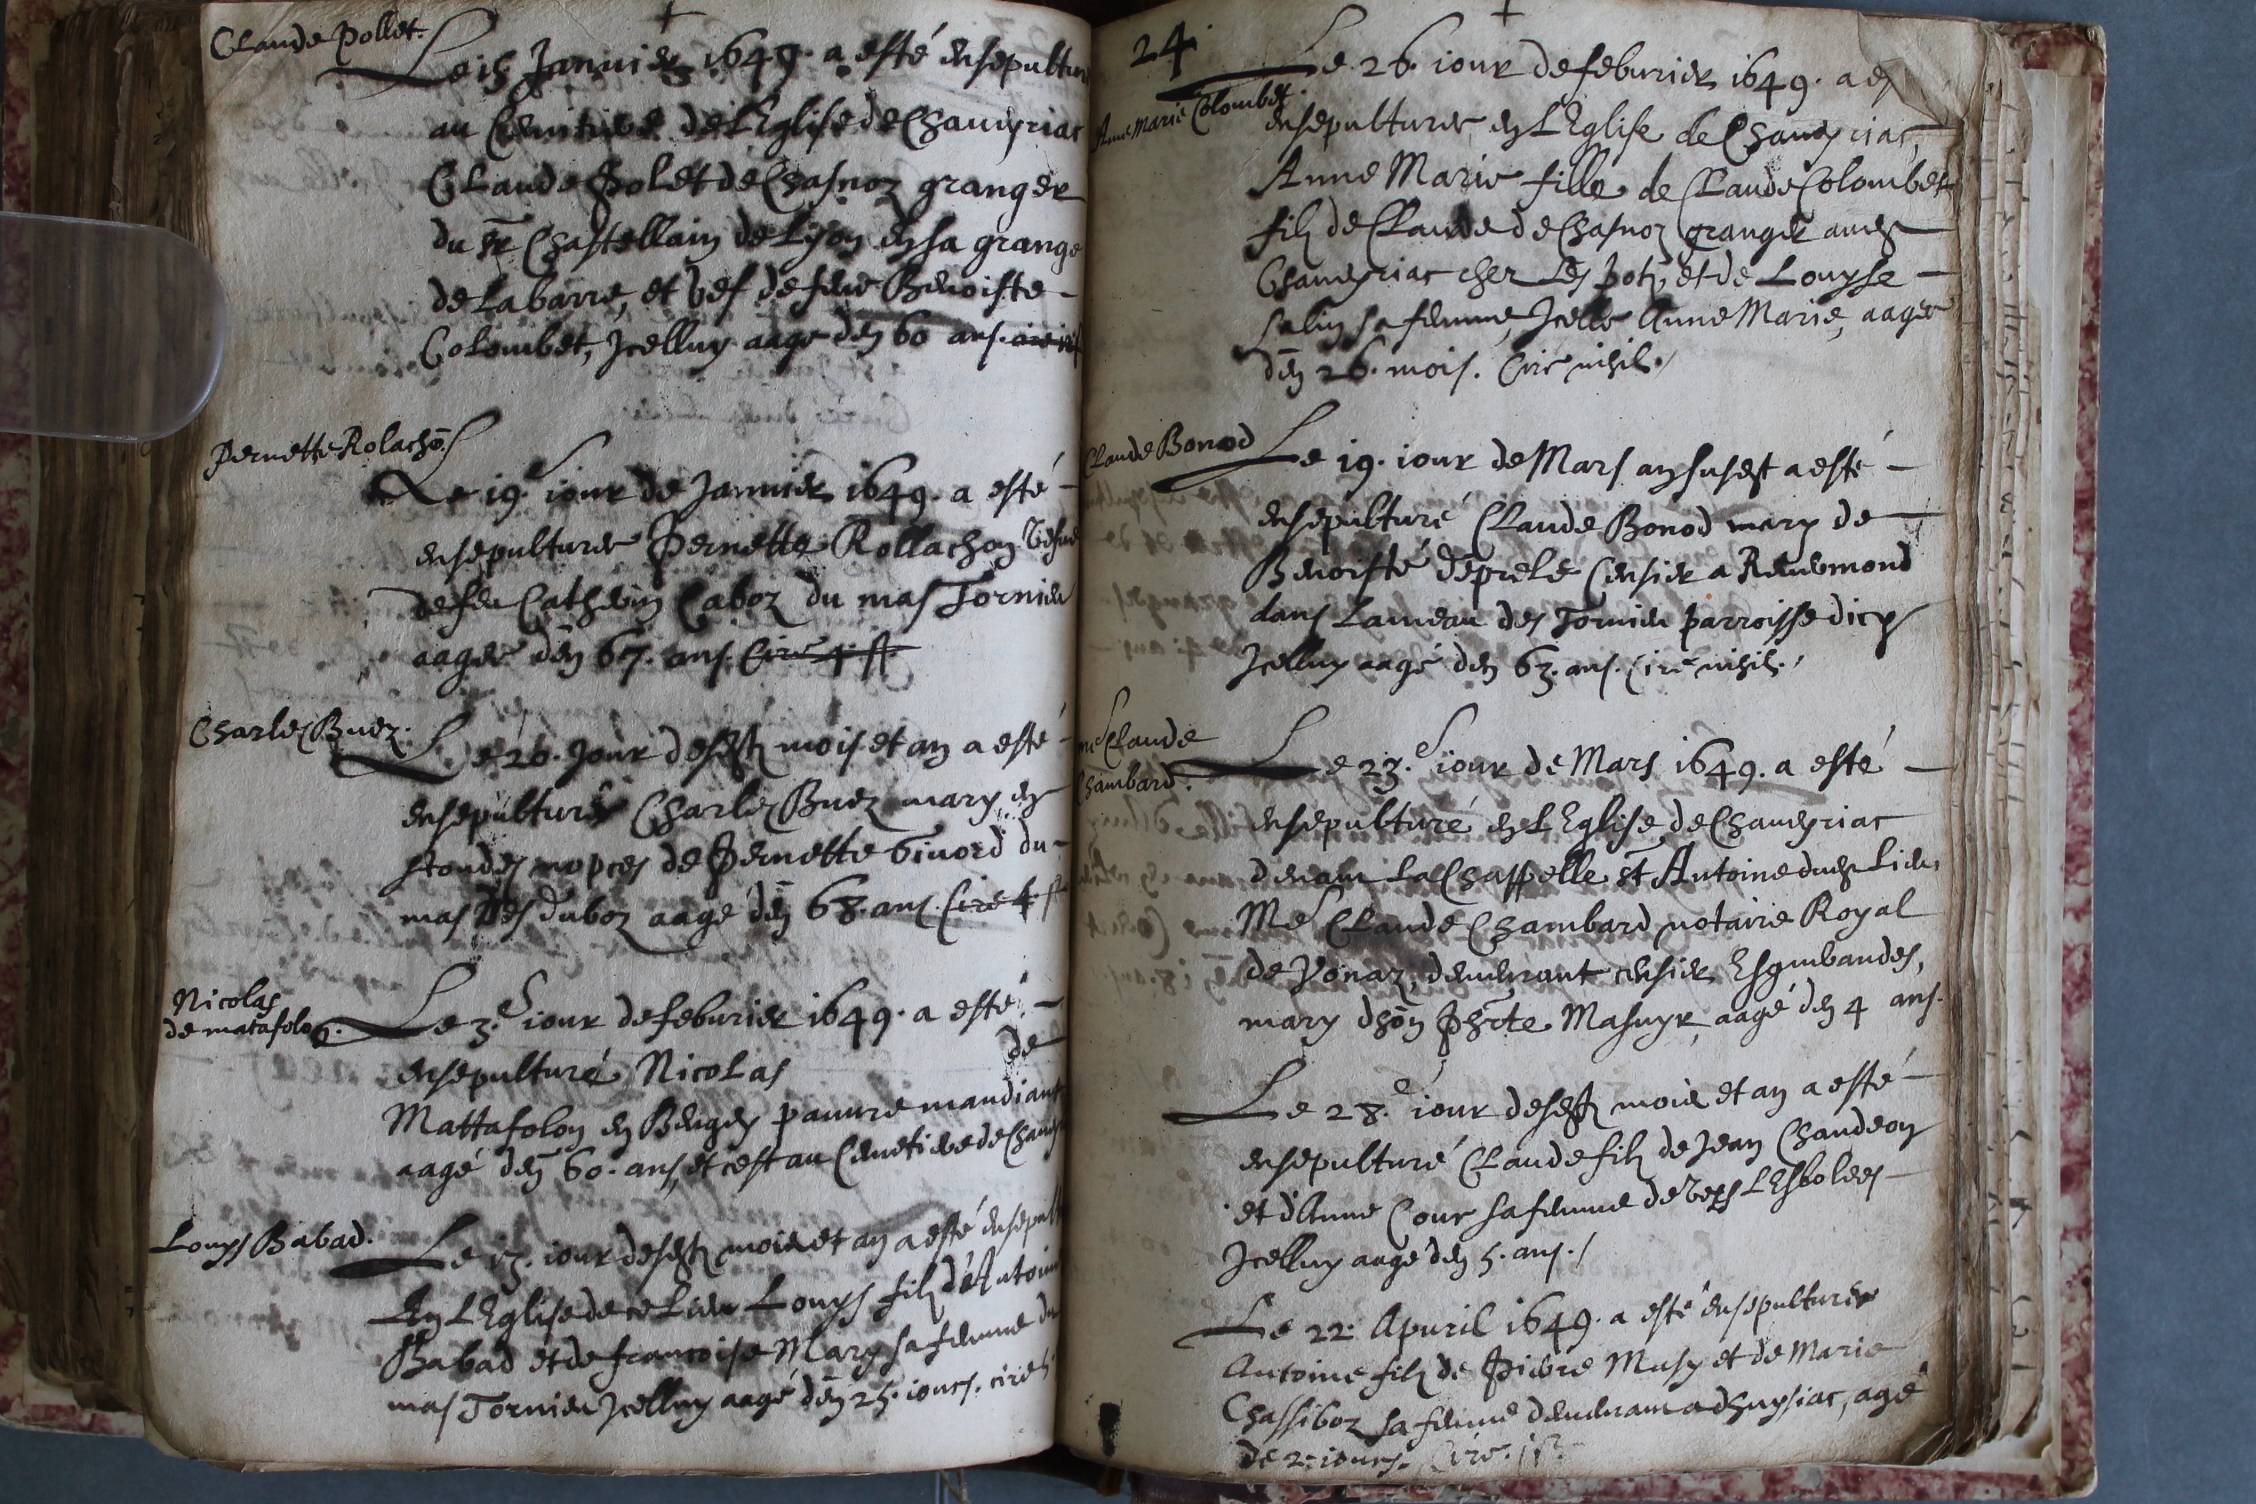 Claude Pollet.
Le 15 Januier 1649. a esté ensepultur
au Cemitiere de lEglise de Chaueyriac
Claude Polet de Chasnoz granger
du sr Chastellain de Lyon en sa grange
de Labarre, et vef de feue Benoiste
Colombet, Jcelluy aagé den 60 ans.
Pernette Rolachō.
Le 19e iour de Januier 1649. a esté
ensepulturee Pernette Rollachon vefue
de feu Catherin Caboz du mas Tornieu
aagee den 67. ans. Cire 4 ff
Charles Buez.
Le 26. Jour desdt mois et an a esté
ensepulturé Charles Buez mary en
scondes nopces de Pernette Giuord du
mas des duboz aagé den 68. ans. Cire 4
Nicolas
de matafolon.
Le 3.e iour de feburier 1649. a esté
ensepulturé Nicolas de
Mattafolon en Beugey pauure mandiant
aagé den 60. ans, et cest au Cemetiere de Chauey
Louys Babad.
Le 13. iour desdt mois et an a esté ensepult
En lEglise de ce Lieu Louys filz dAntoine
Babad et de francoise Mary sa femme du
mas Tornieu Jcelluy aagé den 25. iours. cire
24.
Anne Marie Colombet.
Le 26. iour de feburier 1649. a es
ensepulturee en lEglise de Chaueyriac,
Anne Marie fille de Claude Colombet
filz de Claude de Chasnoz granger audt
Chaueyriac chez Les potz, et de Louyse
salin sa femme, Jcelle Anne Marie, aagee
den 26. mois. Cire nihil.
Claude Bonod
Le 19. iour de Mars an susdt a esté
ensepulturé Claude Bonod mary de
Benoiste deprele Censier a Reuemond
dans Lameau des Tornieu parroisse dicy
Jcelluy aagé den 63. ans. Cire nihil.
me Claude
Chambard.
Le 23.e iour de Mars 1649. a esté
ensepulturé en lEglise de Chaueyriac
deuant La Chappelle st Antoine dudt Lieu,
Me Claude Chambard notaire Royal
de Vonaz, demeurant censier Esguibandes,
mary dhon Phrte Masuyr aagé den 4 ans.
Le 28.e iour desdt mois et an a esté
ensepulturé Claude filz de Jean Chandeon
et dAnne Cour sa femme de vers LEsbolees
Jcelluy aagé den 5. ans.
Le 22. Apuril 1649. a esté ensepulturé
Antoine filz de Pierre Musy et de Marie
Chassiboz sa femme demeurant a dhuysiac, agé
de 2. iours. Cire.